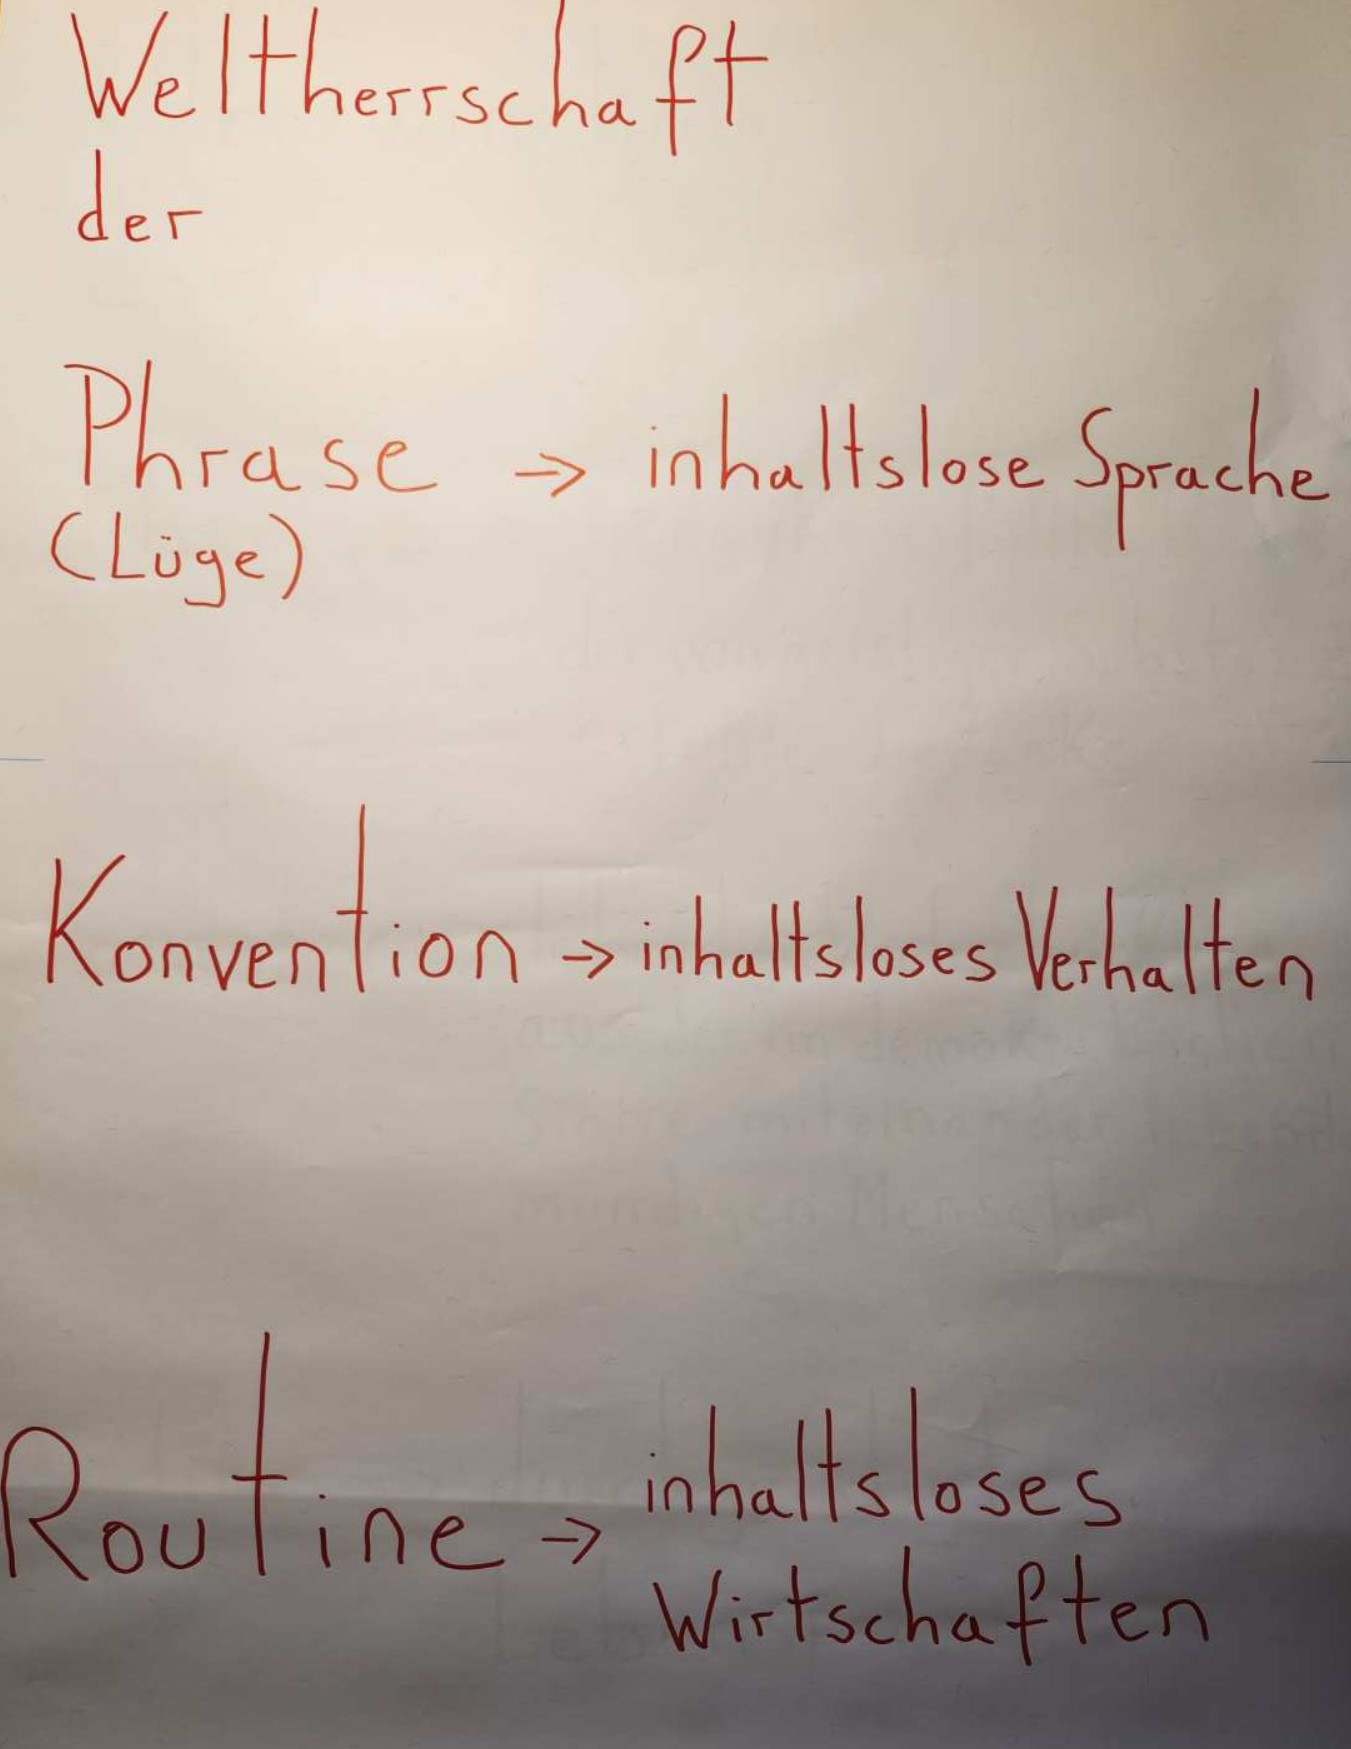 Weltherrschaft
der
Phrase → inhaltslose Sprache
(Lüge)
Konvention → inhaltsloses Verhalten
Routine → inhaltsloses
Wirtschaften